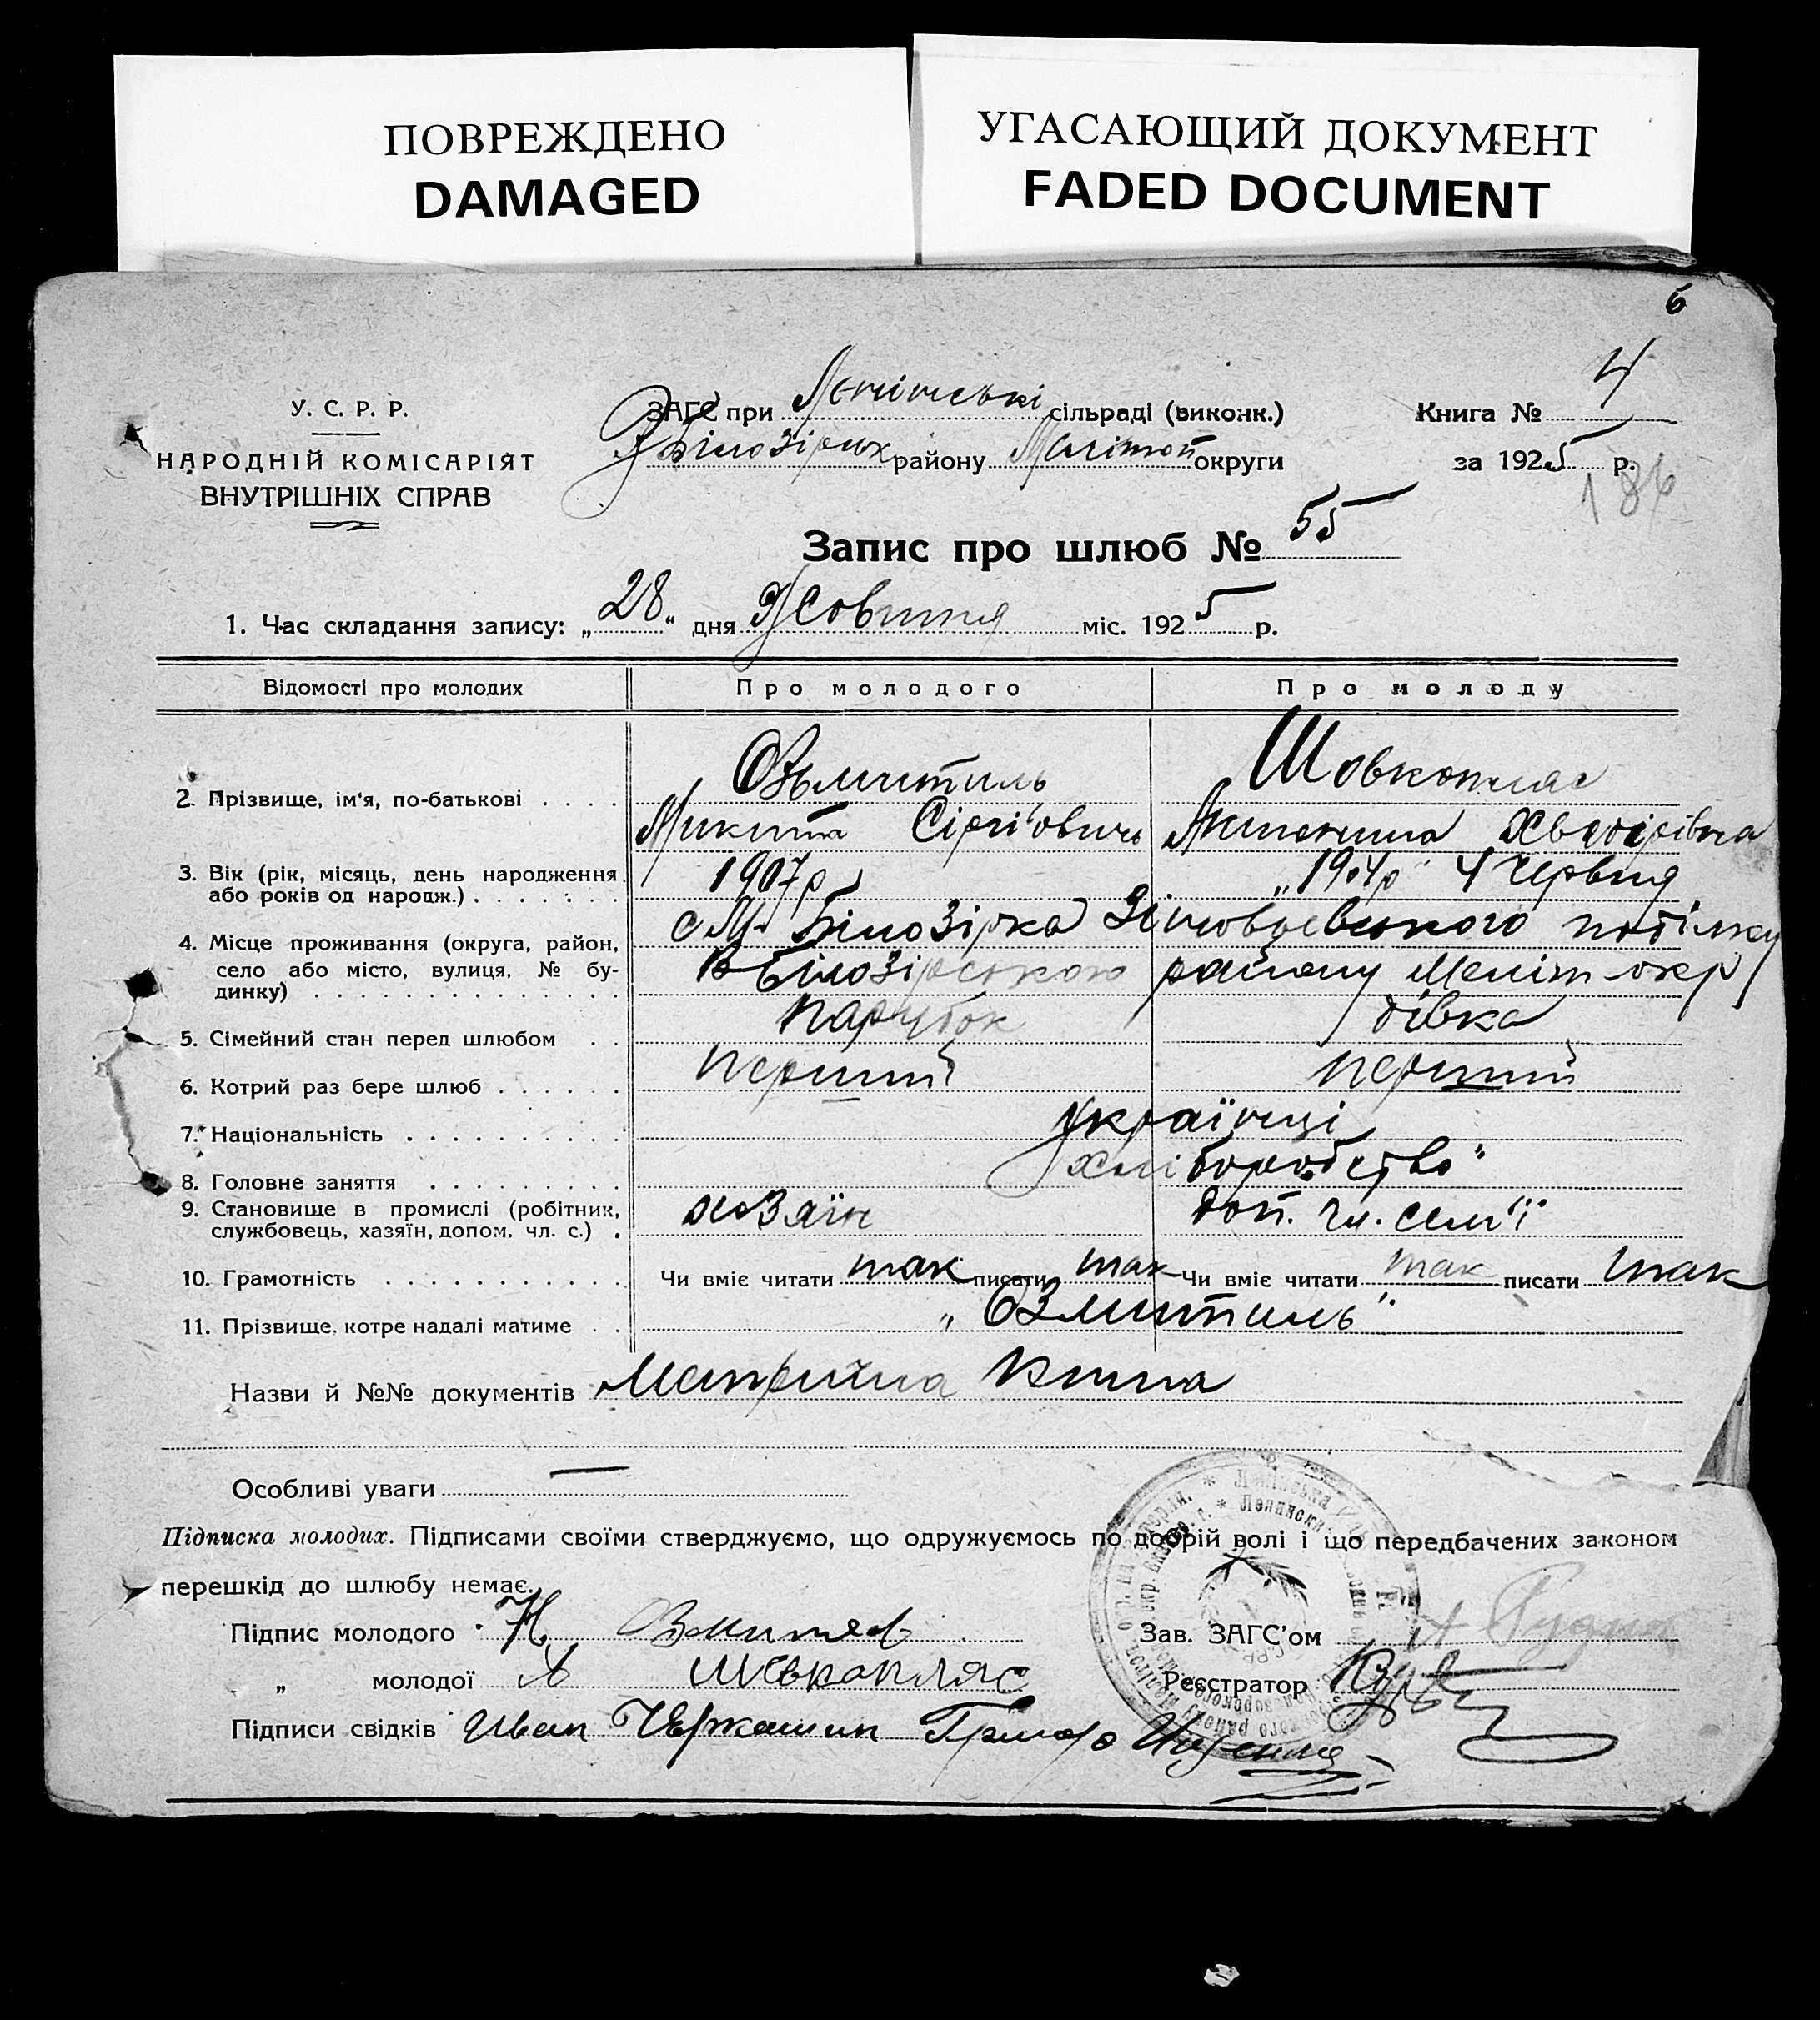 ПОВРЕЖДЕНО
DAMAGED
УГАСАЮЩИЙ ДОКУМЕНТ
FADED DOCUMENT
6
У. С. Р. Р.
НАРОДНІЙ КОМІСАРІЯТ
ВНУТРІШНІХ СПРАВ
ЗАГС при сільраді (виконк.)
Білозірськ району Меліт округи
Книга № 4
за 1925 р.
186
Запис про шлюб № 55
1. Час складання запису: „28“ дня Жовтня міс. 1925 р.
Відомості про молодих
Про молодого
Про молоду
2. Прізвище, ім'я, по-батькові . . . .
Озьмитиль
Микита Сіргійовичь
Шовкопляс
Хведорівна
3. Вік (рік, місяць, день народження або років од народж.) . . . . . . .
1907р
„1904р" 4 Червня
4. Місце проживання (округа, район, село або місто, вулиця, № будинку) . . . . . . . . . . . . . .
с М. Білозірка Зіновоєвського поділку
В Білозірського району Меліт окр
5. Сімейний стан перед шлюбом . .
парубок
дівка
6. Котрий раз бере шлюб . . . . . .
перший
перший
7. Національність . . . . . . . . . .
українці
8. Головне заняття . . . . . . . . .
хліборобство"
9. Становище в промислі (робітник, службовець, хазяїн, допом. чл. с.) .
хозяїн
доп. чл. сем'ї
10. Грамотність . . . . . . . . . . .
Чи вміє читати так писати так
Чи вміє читати так писати так
11. Прізвище, котре надалі матиме . .
„Озмитиль"
Назви й №№ документів Метрична
Особливі уваги —
Підписка молодих. Підписами своїми стверджуємо, що одружуємось по добрій волі і що передбачених законом
перешкід до шлюбу немає.
Підпис молодого Н Озмитель
„ молодої А Шевкопляс
Підписи свідків Иван Черкашин
Зав. ЗАГС'ом
Реєстратор